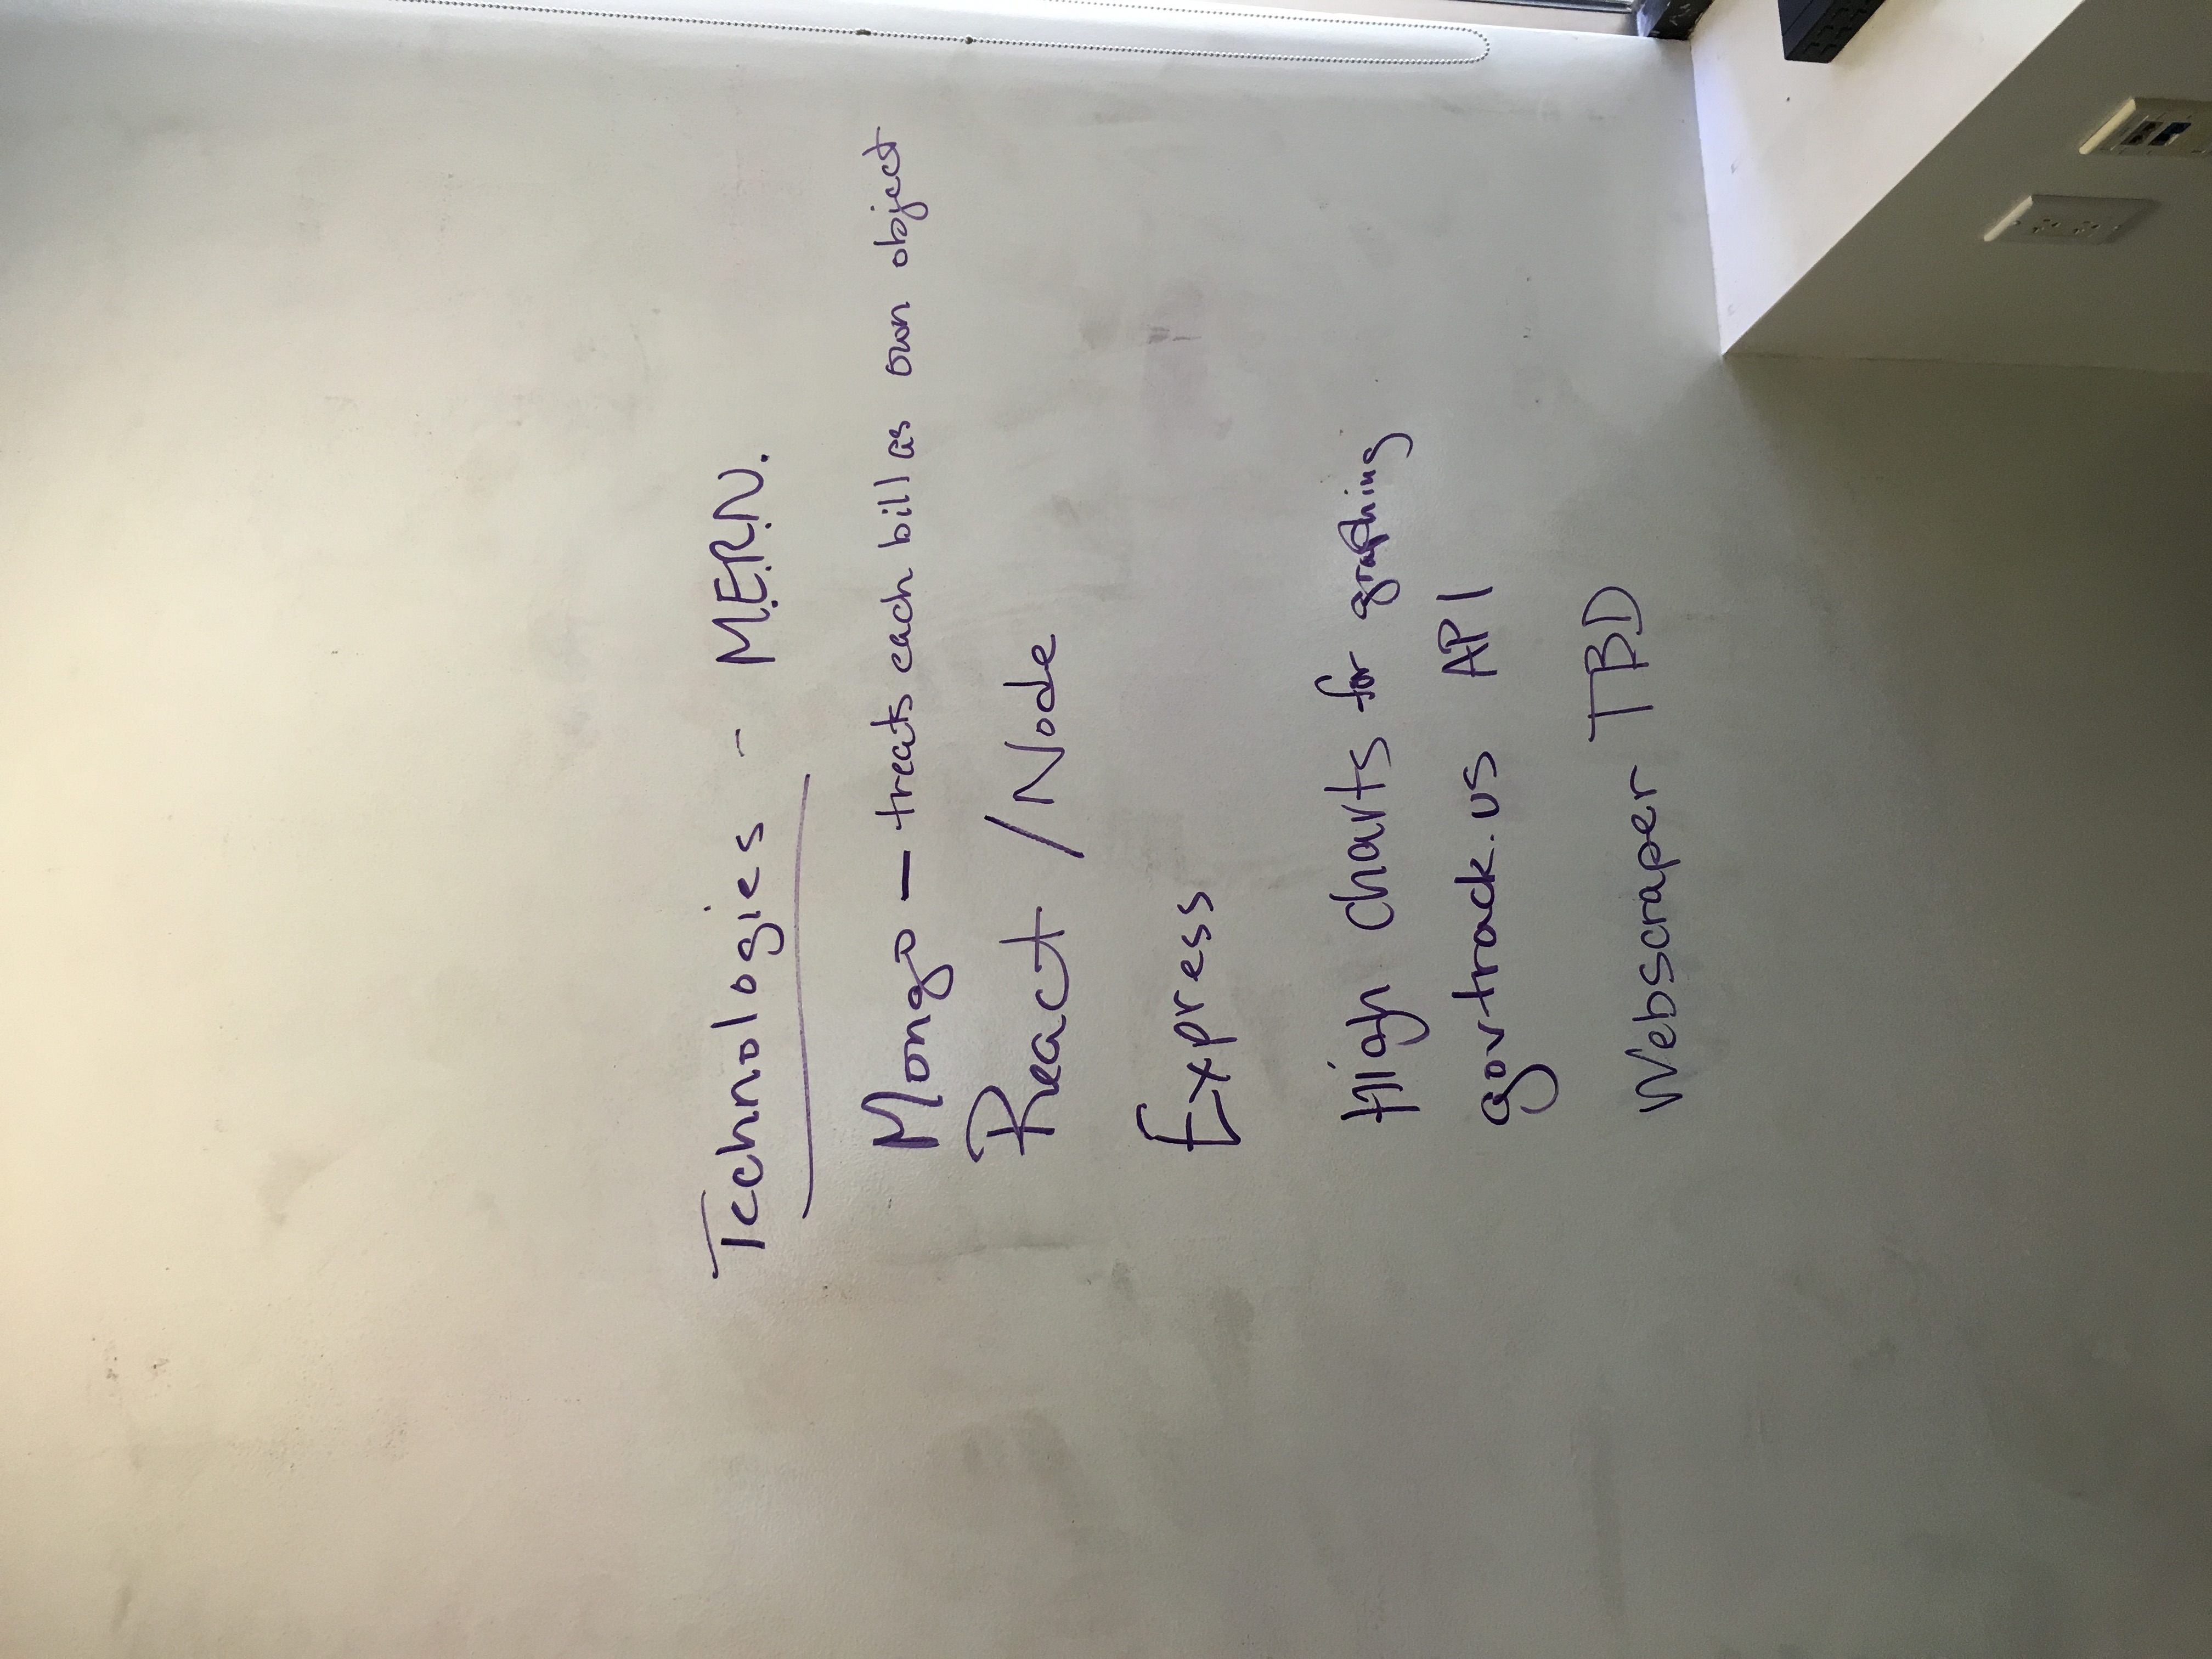 Technologies - M.E.R.N.
Mongo — treats each bill as own object
React / Node
Express
High charts for graphing
govtrack.us API
Webscraper TBD